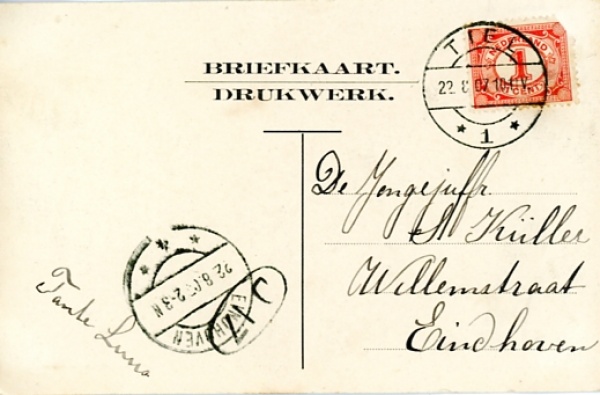 BRIEFKAART.
DRUKWERK.
TIEL
22 8 07 10
1
NEDERLAND
1
CENT
De Jongejuffr.
Küller
Willemstraat
Eindhoven
22.8.07.2-3N
EINDHOVEN
Tante